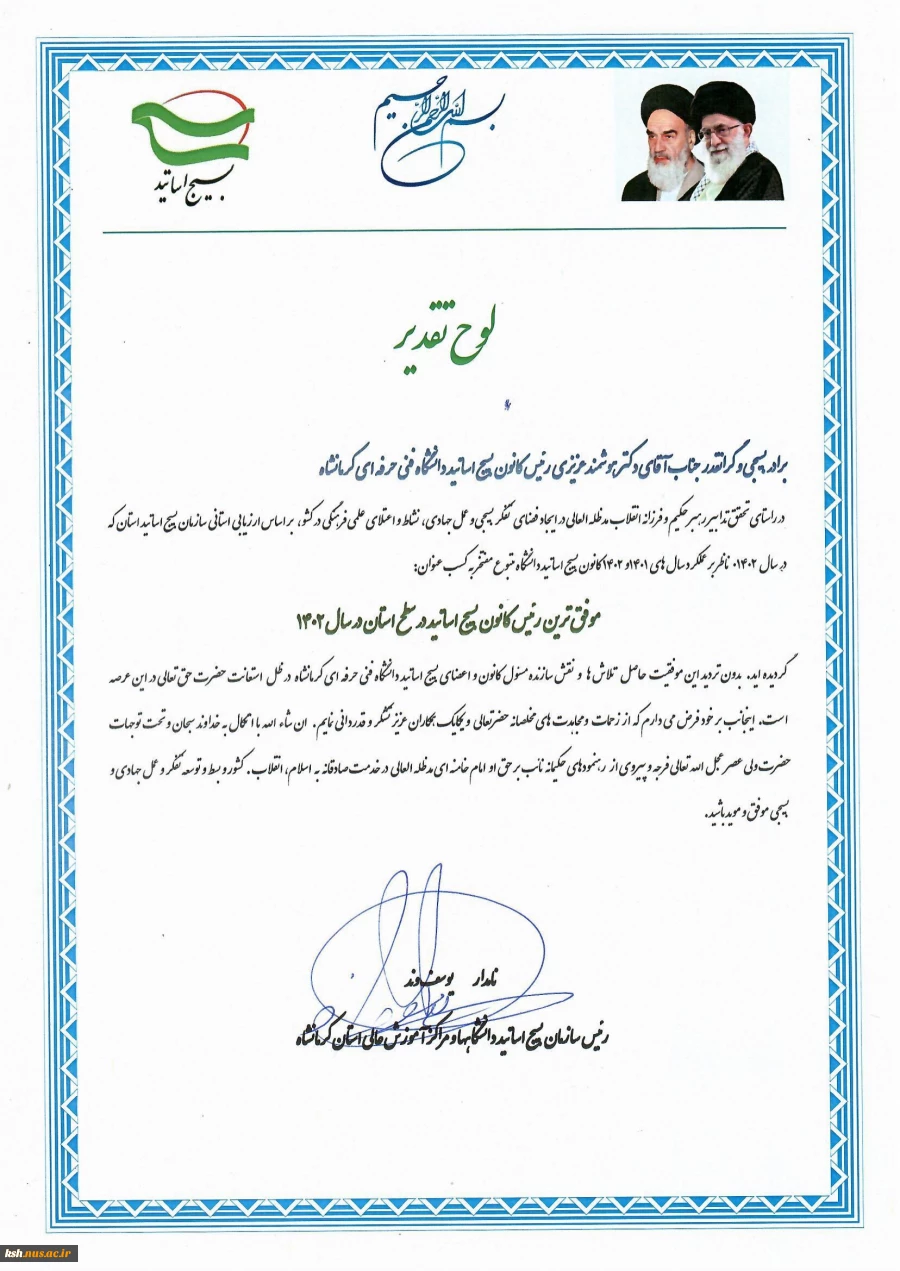 بسم الله الرحمن الرحیم
بسیج اساتید
لوح تقدیر
برادر بسیجی و گرانقدر جناب آقای دکتر هوشمند عزیزی رئیس کانون بسیج اساتید دانشگاه فنی حرفه ای کرمانشاه
در راستای تحقق تدابیر رهبر حکیم و فرزانه انقلاب مدظله العالی در ایجاد فضای تفکر بسیجی و عمل جهادی، نشاط و اعتلای علمی فرهنگی در کشور، بر اساس ارزیابی استانی سازمان بسیج اساتید استان که
در سال ۱۴۰۲، ناظر بر عملکرد سال های ۱۴۰۱و ۱۴۰۲ کانون بسیج اساتید دانشگاه متبوع مفتخر به کسب عنوان:
موفق ترین رئیس کانون بسیج اساتید در سطح استان در سال ۱۴۰۲
گردیده اید. بدون تردید این موفقیت حاصل تلاش ها و نقش سازنده مسئول کانون و اعضای بسیج اساتید دانشگاه فنی حرفه ای کرمانشاه در ظل استعانت حضرت حق تعالی در این عرصه
است. اینجانب بر خود فرض می دارم که از زحمات و مجاهدت های مخلصانه حضرتعالی و یکایک همکاران عزیز تشکر و قدردانی نمایم. ان شاء الله با اتکال به خداوند سبحان و تحت توجهات
حضرت ولی عصر عجل الله تعالی فرجه و پیروی از رهنمودهای حکیمانه نائب برحق او امام خامنه ای مدظله العالی در خدمت صادقانه به اسلام، انقلاب، کشور و بسط و توسعه تفکر و عمل جهادی و
بسیجی موفق و موید باشید.
نامدار یوسف وند
رئیس سازمان بسیج اساتید دانشگاهها و مراکز آموزش عالی استان کرمانشاه
ksh.nus.ac.ir